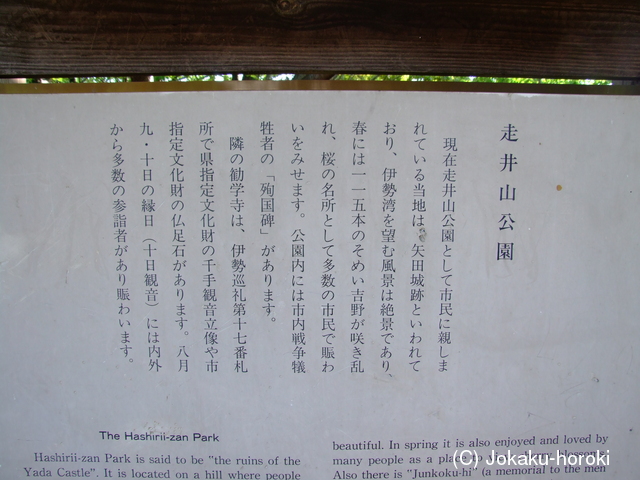 走井山公園
現在走井山公園として市民に親しま
れている当地は、矢田城跡といわれて
おり、伊勢湾を望む風景は絶景であり、
春には一一五本のそめい吉野が咲き乱
れ、桜の名所として多数の市民で賑わ
いをみせます。公園内には市内戦争犠
牲者の「殉国碑」があります。
隣の勧学寺は、伊勢巡礼第十七番札
所で県指定文化財の千手観音立像や市
指定文化財の仏足石があります。八月
九・十日の縁日（十日観音）には内外
から多数の参詣者があり賑わいます。
The Hashirii-zan Park
Hashirii-zan Park is said to be "the ruins of the
Yada Castle". It is located on a hill where people
beautiful. In spring it is also enjoyed and loved by
many people as a place to
Also there is "Junkoku-hi" (a memorial to the men
(C) Jokaku-horoki